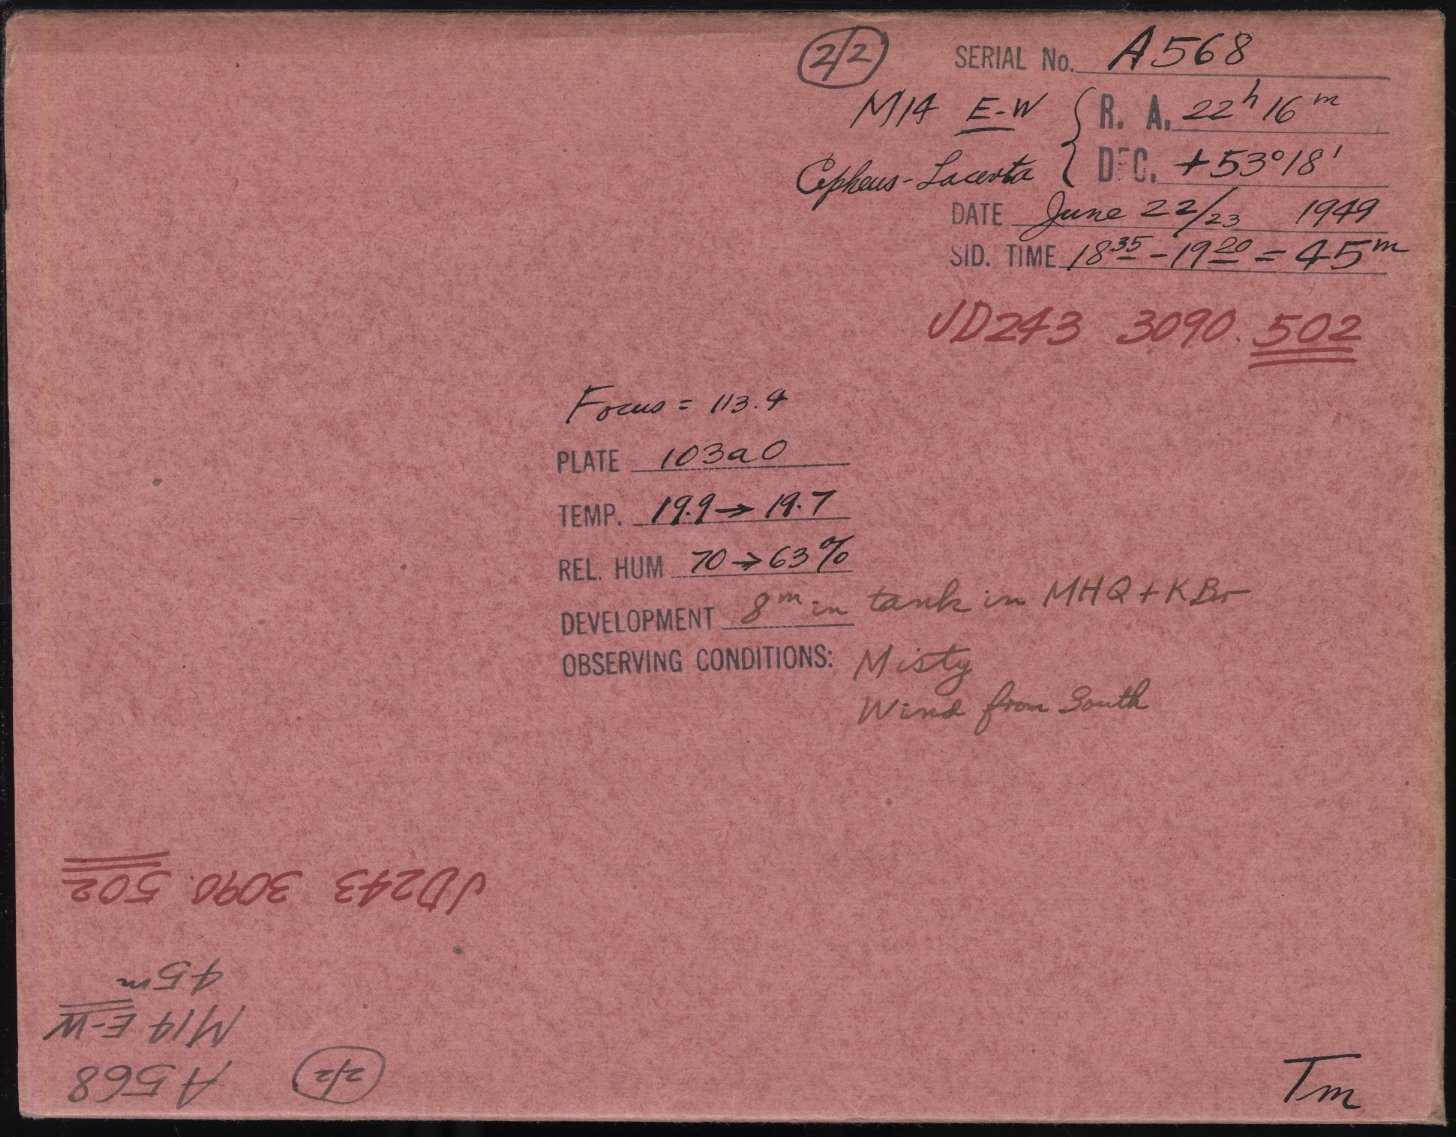 2/2
SERIAL No. A568
M14 E-W { R. A. 22h 16m
Cepheus-Lacerta { DEC. +53°18'
DATE June 22/23 1949
SID. TIME 18 35 - 19 20 = 45m
JD243 3090.502
Focus = 113.4
PLATE 103a0
TEMP. 19.9 → 19.7
REL. HUM 70 → 63%
DEVELOPMENT 8m in tank in MHQ + KBr
OBSERVING CONDITIONS: Misty
Wind from South
Tm
2/2
A568
M14 E-W
45m
JD243 3090 502